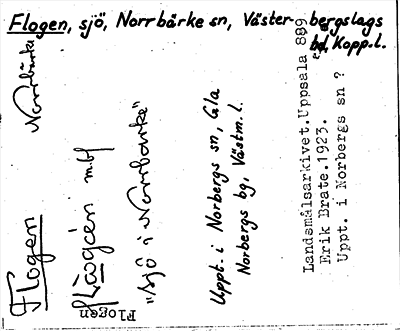 Flogen, sjö, Norrbärke sn, Väster-bergslags
bd, Kopp.l.
Flogen Norrbärke
mbf
"sjö i Norrbärke"
Uppt. i Norbergs sn, Gla
Norbergs bg, Västm.l.
Landsmålsarkivet.Uppsala 889
Erik Brate.1923.
Uppt. i Norbergs sn ?
Flogen